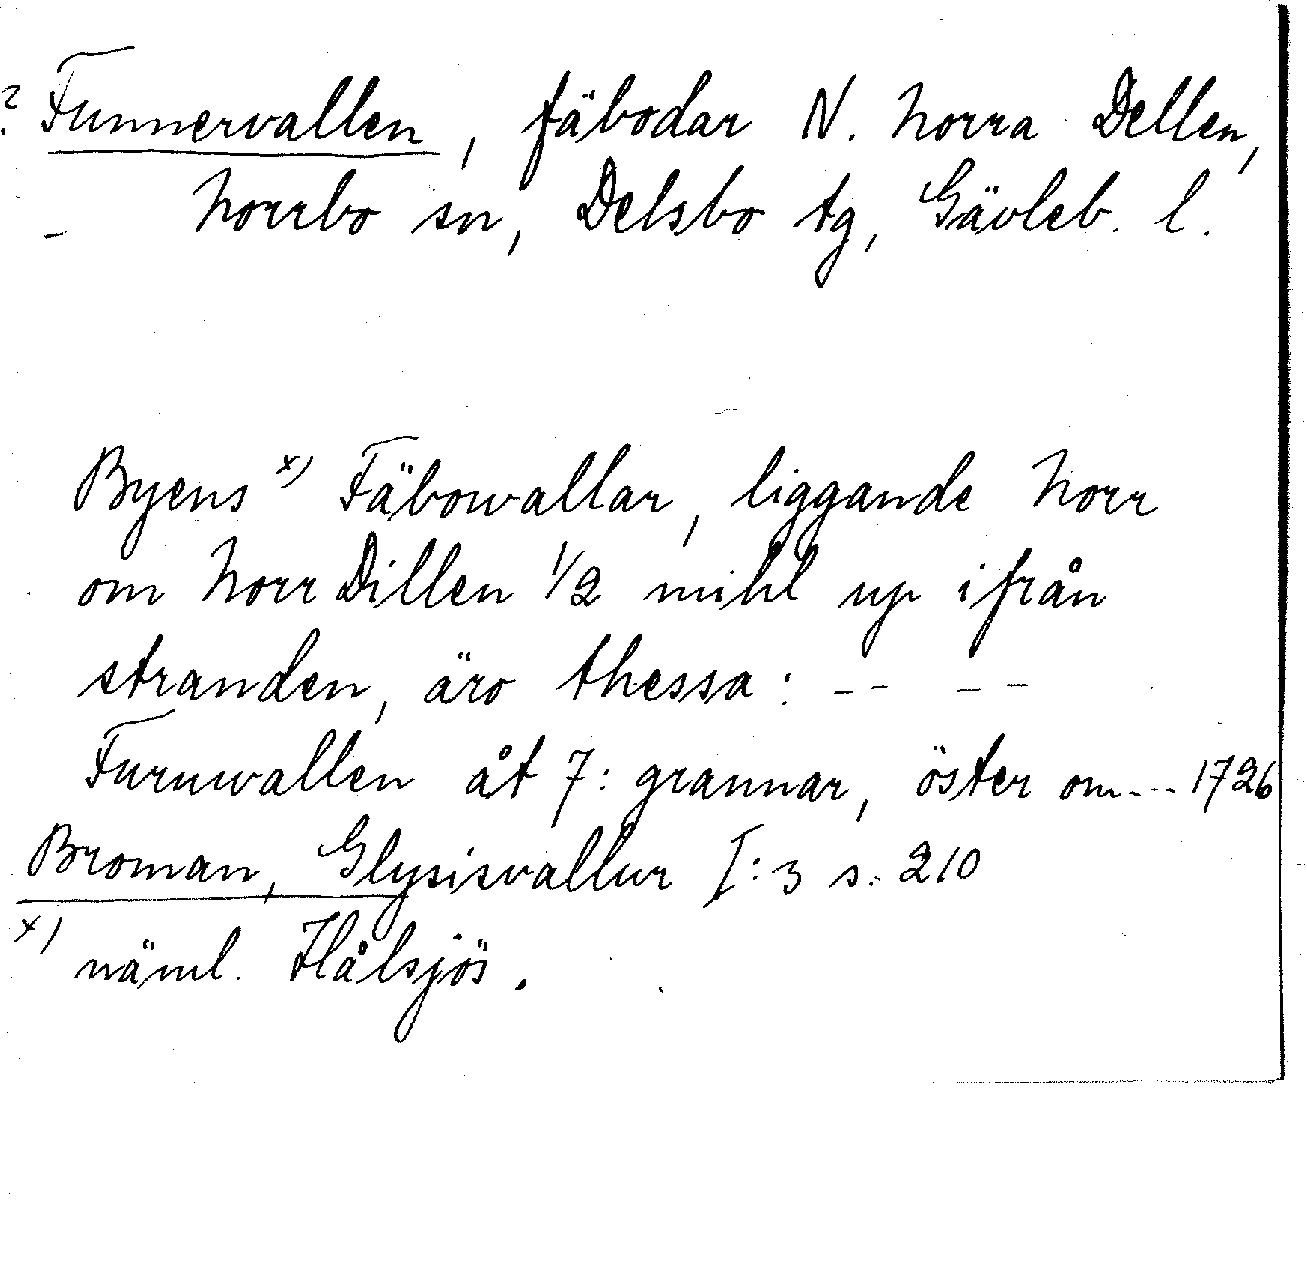 ? Funnervallen, fäbodar N. Norra Dellen,
- Norrbo sn, Delsbo tg, Gävleb. l.
Byens x) Fäbowallar, liggande Norr
om Norr Dillen 1/2 mihl up ifrån
stranden, äro thessa: -- --
Furuwallen åt 7: grannar, öster om --- 1726
Broman, Glysisvallur I:3 s. 210
x) näml. Hålsjös.